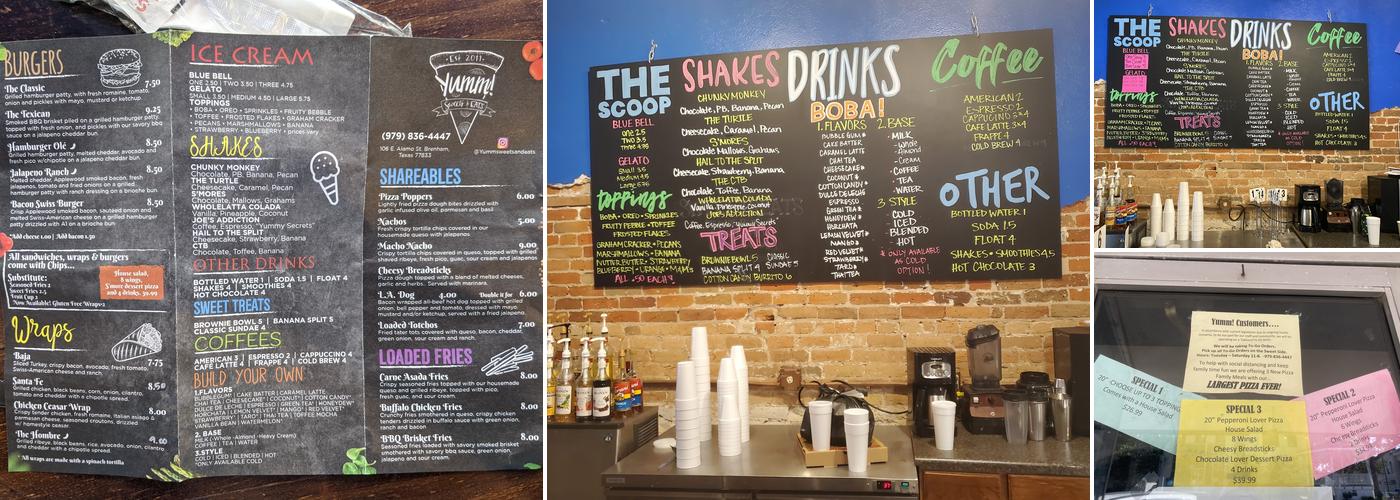 BURGERS
The Classic 7.50
Grilled hamburger patty, with fresh romaine, tomato,
onion and pickles with mayo, mustard or ketchup.
9.25
The Texican
Smoked BBQ brisket piled on a grilled hamburger patty,
topped with fresh onion, and pickles with our savory bbq
sauce on a jalapeño cheddar bun.
Hamburger Olé 8.50
Grilled hamburger patty, melted cheddar, avocado and
fresh pico w/chipotle on a jalapeno cheddar bun.
Jalapeno Ranch 8.50
Melted cheddar, Applewood smoked bacon, fresh
jalapenos, tomato and fried onions on a grilled
hamburger patty with ranch dressing on a brioche bun
Bacon Swiss Burger 8.50
Crisp Applewood smoked bacon, sautéed onion and
melted Swiss-American cheese on a grilled hamburger
patty drizzled with A1 on a brioche bun.
*Add cheese 1.00 | Add bacon 1.50
All sandwiches, wraps & burgers
come with Chips...
Substitute:
Seasoned Fries 2
Sweet Fries 2.5
Fruit Cup 2
Now Available! Gluten Free Wraps+2
House salad,
8 wings,
S'more dessert pizza
and 4 drinks. 39.99
Wraps
Baja 7.75
Sliced Turkey, crispy bacon, avocado, tomato,
Swiss-American cheese and ranch.
Santa Fe 8.50
Grilled chicken, black beans, corn, onion,
cheddar with a chipotle spread.
Chicken Ceasar Wrap 8.00
Crispy tender chicken, fresh romaine, Italian asiago &
parmesan cheese, seasoned croutons, drizzled
w/ homestyle caesar.
The Hombre 9.00
Grilled ribeye, black beans, rice, avocado, onion, cilantro
and chipotle.
* All wraps are made with a spinach tortilla
ICE CREAM
BLUE BELL
ONE 2.50 | TWO 3.50 | THREE 4.75
GELATO
SMALL 3.50 | MEDIUM 4.50 | LARGE 5.75
TOPPINGS
• BOBA • OREO • SPRINKLES • FRUITY PEBBLE
• TOFFEE • FROSTED FLAKES • GRAHAM CRACKER
• PECANS • MARSHMALLOWS • BANANA
• STRAWBERRY • BLUEBERRY • prices vary
SHAKES
CHUNKY MONKEY
Chocolate, PB, Banana, Pecan
THE TURTLE
Cheesecake, Caramel, Pecan
S'MORES
Chocolate, Mallows, Grahams
WHOLELATTA COLADA
Vanilla, Pineapple, Coconut
JOE'S ADDICTION
Coffee, Espresso, "Yummy Secrets"
HAIL TO THE SPLIT
Cheesecake, Strawberry, Banana
CTB
Chocolate, Toffee, Banana
OTHER DRINKS
BOTTLED WATER 1 | SODA 1.5 | FLOAT 4
SHAKES 4 | SMOOTHIES 4
HOT CHOCOLATE 4
SWEET TREATS
BROWNIE BOWL 5 | BANANA SPLIT 5
CLASSIC SUNDAE 4
COFFEES
AMERICAN 3 | ESPRESSO 2 | CAPPUCCINO 4
CAFE LATTE 4 | FRAPPE 4 | COLD BREW 4
BUILD YOUR OWN
1. FLAVORS
BUBBLEGUM | CAKE BATTER | CARAMEL LATTE
CHAI TEA | CHEESECAKE* | COCONUT* | COTTON CANDY*
DULCE DE LECHE | ESPRESSO | GREEN TEA* | HONEYDEW*
HORCHATA | LEMON VELVET* | MANGO* | RED VELVET*
STRAWBERRY* | TARO* | THAI TEA | TOFFEE MOCHA
VANILLA BEAN | WATERMELON*
2. BASE
MILK (•Whole •Almond •Heavy Cream)
COFFEE | TEA | WATER
3. STYLE
COLD | ICED | BLENDED | HOT
*ONLY AVAILABLE COLD
EST 2011
Yumm!
Sweets & Eats
(979) 836-4447
106 E. Alamo St. Brenham,
Texas 77833
@Yummsweetsandeats
SHAREABLES
Pizza Poppers 6.00
Lightly fried pizza dough bites drizzled with
garlic infused olive oil, parmesan and basil.
Nachos 5.00
Fresh crispy tortilla chips covered in our
housemade queso with jalapenos.
Macho Nacho 9.00
Crispy tortilla chips covered in queso, topped with
grilled ribeye, fresh pico, guac, onion and jalapenos.
Cheesy Breadsticks 8.00
Pizza dough topped with a blend of melted cheeses,
garlic and herbs. Served with marinara.
L.A. Dog 4.00 Double it for 6.00
Bacon wrapped all-beef hot dog topped with grilled
onion, bell pepper and tomato, dressed with mayo,
mustard and/or ketchup, served with a fried jalapeno.
Loaded Totchos 7.00
Fried tater tots covered with queso, bacon, cheddar,
green onion, sour cream and ranch.
LOADED FRIES
Carne Asada Fries 8.00
Crispy seasoned fries topped with our housemade
queso and grilled ribeye, topped with pico,
fresh guac, and sour cream.
Buffalo Chicken Fries 8.00
Crunchy fries smothered in queso, crispy chicken
tenders drizzled in buffalo sauce with green onion,
and ranch.
BBQ Brisket Fries 8.00
Seasoned fries loaded with savory smoked brisket
smothered with savory bbq sauce, green onion,
cheddar and sour cream.
THE
SCOOP
BLUE BELL
one 2.5
Two 3.5
Three 4.75
GELATO
Small 3.5
Medium 4.5
Large 5.75
toppings
BOBA • OREO • SPRINKLES
FRUITY PEBBLE • TOFFEE
FROSTED FLAKES
GRAHAM CRACKER • PECANS
MARSHMALLOWS • BANANA
NUTTER BUTTER • STRAWBERRY
ALL .50 EACH
SHAKES
CHUNKY MONKEY
Chocolate, P.B, Banana, Pecan
THE TURTLE
Cheesecake, Caramel, Pecan
S'MORES
Chocolate, Mallows, Grahams
HAIL TO THE SPLIT
Cheesecake, Strawberry, Banana
THE CTB
Chocolate, Toffee, Banana
WHOLELATTA COLADA
Vanilla, Pineapple, Coconut
JOE'S ADDICTION
Coffee, Espresso, "Yummy Secrets"
TREATS
BROWNIE BOWL 5 CLASSIC
BANANA SPLIT 5 SUNDAE 4
COTTON CANDY BURRITO 6
DRINKS
BOBA!
1. FLAVORS
BUBBLE GUM
CAKE BATTER
CARAMEL LATTE
CHAI TEA
CHEESECAKE*
COCONUT*
COTTON CANDY*
DULCE DELECHE
ESPRESSO
GREEN TEA*
HONEYDEW*
HORCHATA
LEMON VELVET*
MANGO*
RED VELVET*
STRAWBERRY*
TARO*
THAI TEA
2. BASE
• MILK
- Whole
- Almond
- Cream
• COFFEE
• TEA
• WATER
3 STYLE
• COLD
• ICED
• BLENDED
• HOT
* ONLY AVAILABLE
AS COLD
OPTION!
Coffee
AMERICAN 2
ESPRESSO 2
CAPPUCINO 3 × 4
CAFE LATTE 3×4
FRAPPE 4
COLD BREW 4
OTHER
BOTTLED WATER 1
SODA 1.5
FLOAT 4
SHAKES • SMOOTHIES 4.5
HOT CHOCOLATE 3
THE
SCOOP
BLUE BELL
GELATO
toppings
SHAKES
CHUNKY MONKEY
TREATS
DRINKS
BOBA!
1. FLAVORS
2. BASE
Coffee
OTHER
BOTTLED WATER 1
SODA 1.5
FLOAT 4
SHAKES • SMOOTHIES 4.5
HOT CHOCOLATE 3
Yumm! Customers....
We will be taking To-Go Orders.
Pick up all To-Go Orders on the Sweet Side.
Hours: Tuesday – Saturday 11-8. -979-836-4447
To help with social distancing and keep
family time fun we are offering 3 New Pizza
Family Meals with our...
LARGEST PIZZA EVER!
SPECIAL 1
20" CHOOSE UP TO 3 TOPPINGS
Comes with a House Salad
$26.99
SPECIAL 3
20" Pepperoni Lover Pizza
House Salad
8 Wings
Cheesy Breadsticks
Chocolate Lover Dessert Pizza
4 Drinks
$39.99
SPECIAL 2
20" Pepperoni Lover Pizza
House Salad
6 Wings
Cheesy Breadsticks